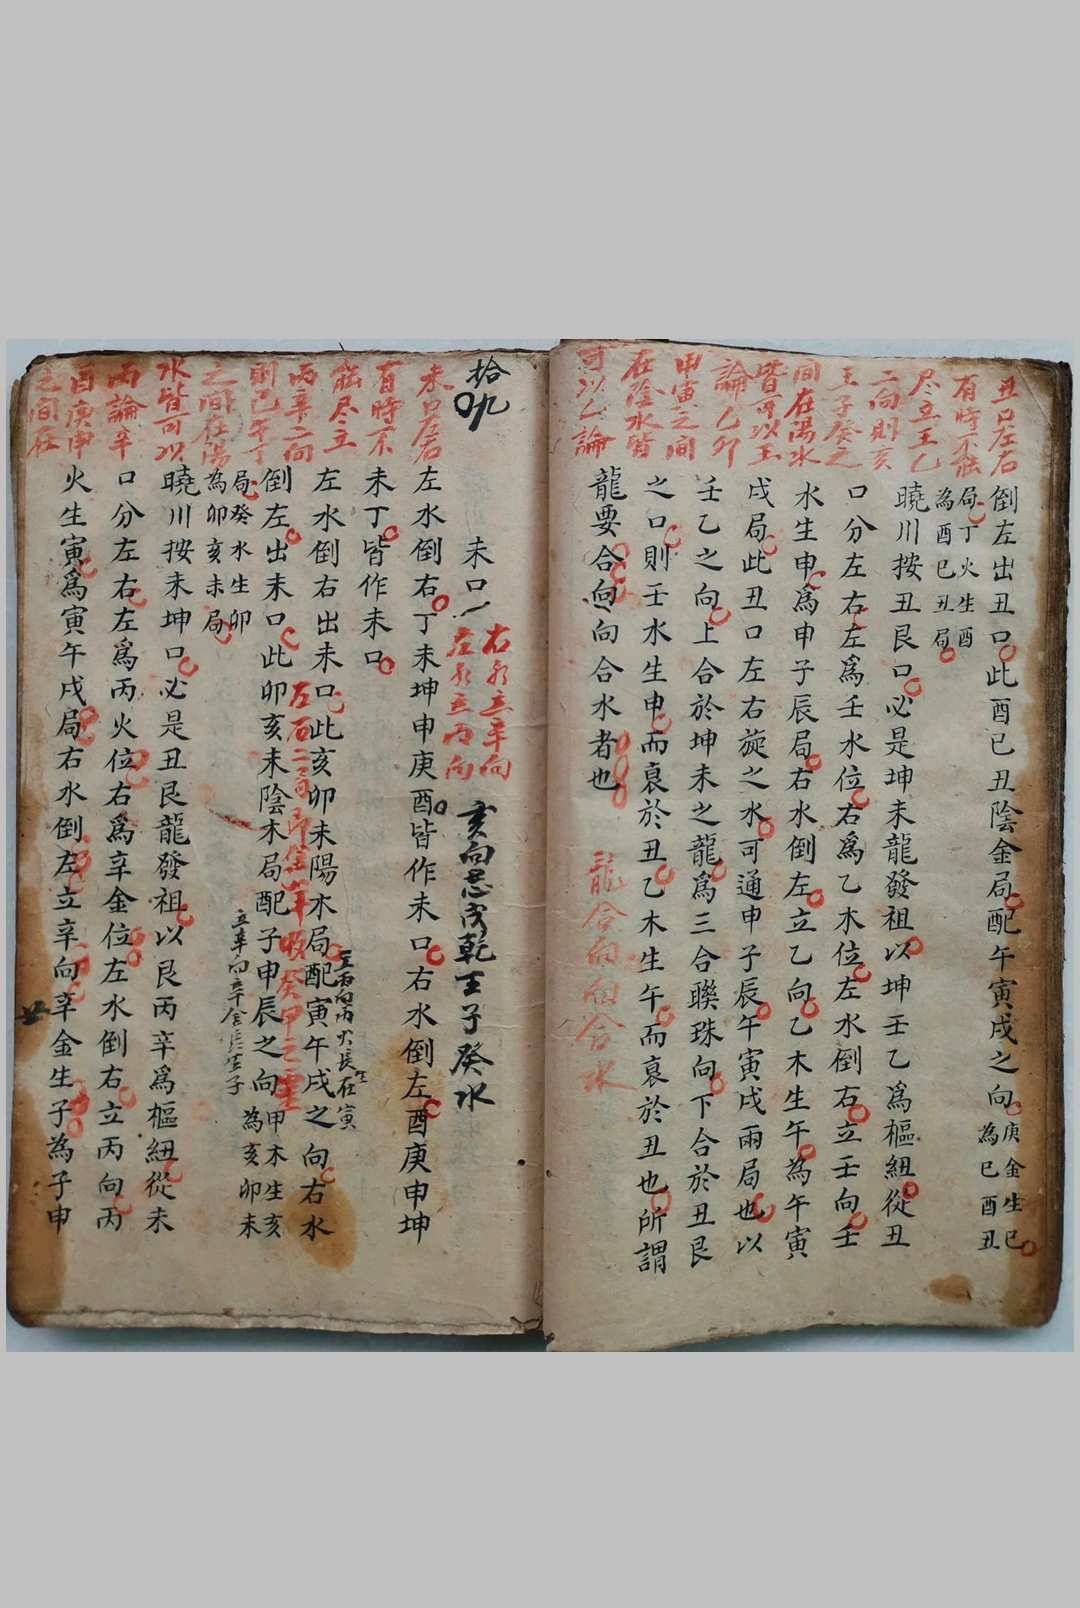 丑口左右
有時不能
尽立壬乙
二向則亥
壬子癸之
間在陽水
皆可以壬
論乙卯
甲寅之間
在陰水皆
可以乙論
倒左出丑口此酉巳丑陰金局配午寅戌之向
庚金生巳
為巳酉丑
局丁火生酉
為酉巳丑局
曉川按丑艮口必是坤未龍發祖以坤壬乙爲樞紐從丑
口分左右左爲壬水位右爲乙木位左水倒右立壬向壬
水生申爲申子辰局右水倒左立乙向乙木生午為午寅
戌局此丑口左右旋之水可通申子辰午寅戌兩局也以
壬乙之向上合於坤未之龍爲三合聯珠向下合於丑艮
之口則壬水生申而衰於丑乙木生午而衰於丑也所謂
龍要合向向合水者也
龍合向向合水
拾九
未口
右水立辛向
左水立丙向
亥向忌戌乾壬子癸水
未口左右
有時不
能尽立
丙辛二向
則巳午丁
之間在陽
水皆可以
丙論辛
酉庚申
之間在
左水倒右丁未坤申庚酉皆作未口右水倒左酉庚申坤
未丁皆作未口
左水倒右出未口此亥卯未陽木局配寅午戌之向右水
立丙向丙火長生在寅
倒左出未口此卯亥未陰木局配子申辰之向
甲木生亥
為亥卯未
立辛向辛金長生子
局癸水生卯
為卯亥未局
曉川按未坤口必是丑艮龍發祖以艮丙辛爲樞紐從未
口分左右左爲丙火位右爲辛金位左水倒右立丙向丙
火生寅爲寅午戌局右水倒左立辛向辛金生子為子申
廿